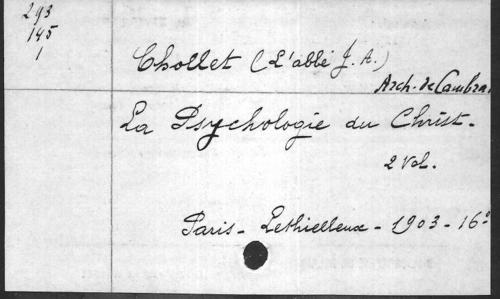 293
145
1
Chollet (L'abbé J. A.)
Arch. de Cambrai
La Psychologie du Christ.
2 Vol.
Paris - Lethielleux - 1903 - 16º